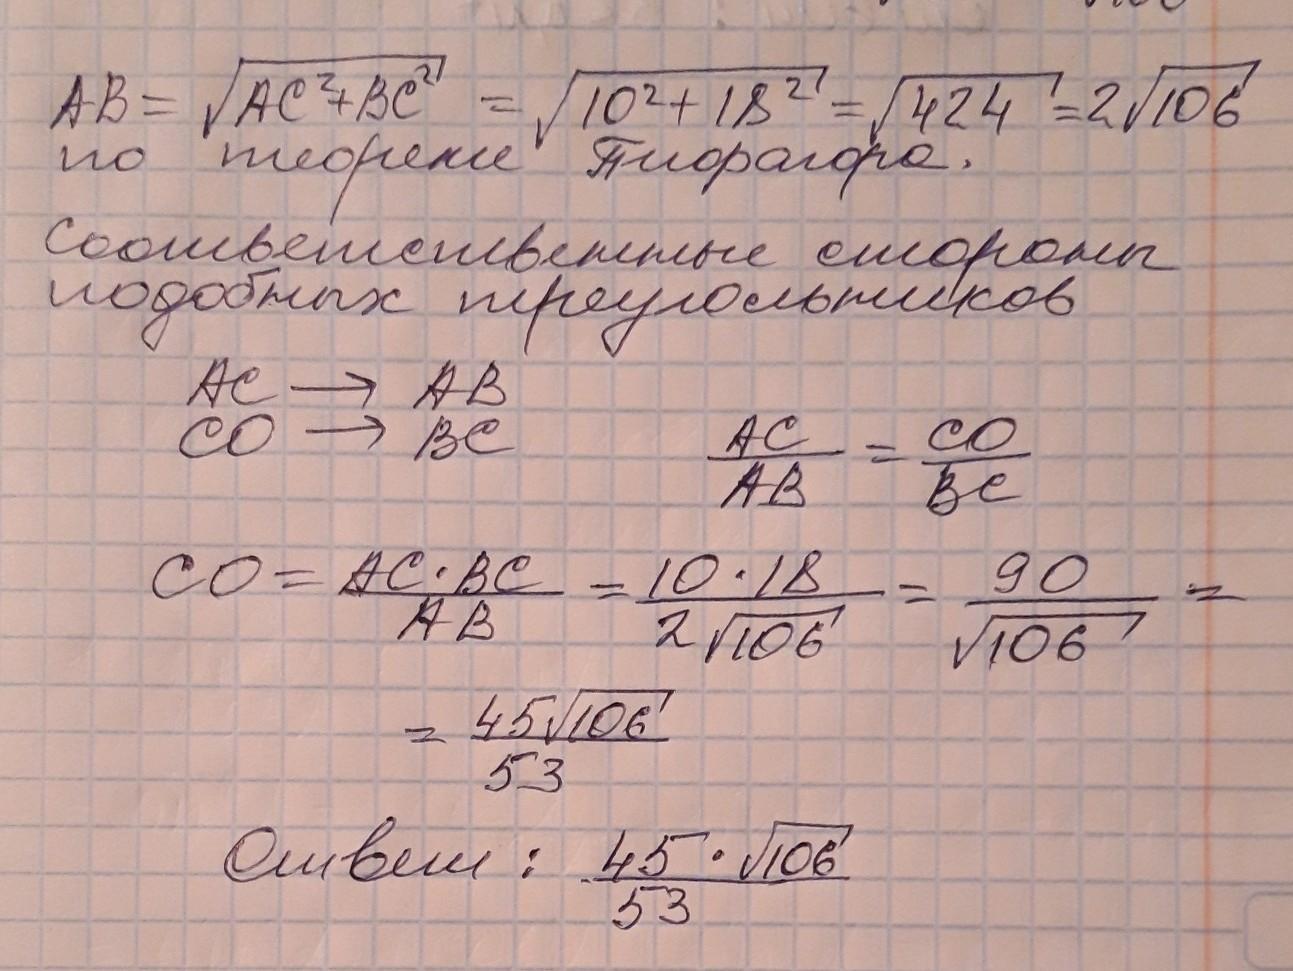 AB = √(AC² + BC²) = √(10² + 18²) = √424 = 2√106
по теореме Пифагора.
Соответственные стороны
подобных треугольников
AC → AB
CO → BC
AC/AB = CO/BC
CO = AC·BC/AB = 10·18/2√106 = 90/√106 =
= 45√106/53
Ответ: 45·√106/53